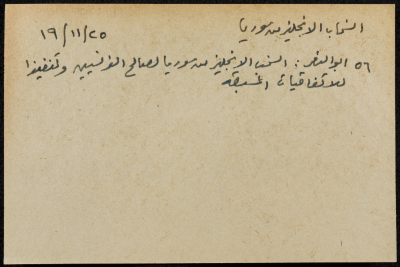 انسحاب الانجليز من سوريا
١٩/١١/٢٥
٥٦ ابو النصر : انسحب الانجليز من سوريا لصالح الفرنسيين وتنفيذا
للاتفاقيات المسبقة